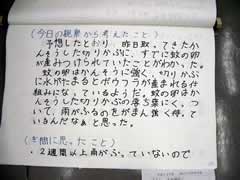 (今日の観察から考えたこと)
予想したとおり、昨日取ってきたか
んそうした切りかぶに、すでに蚊の卵
が産みつけられていたことがわかった。
蚊の卵はかんそうに強く、切りかぶ
に水がたまるとボウフラが産まれる仕
組みになっているようだ。蚊の卵はか
んそうした切りかぶの落ち葉にくっつ
いて、雨がふるのをがまん強く待って
いるんだなぁと思った。
(ぎ問に思ったこと)
・2週間以上雨がふっていないので